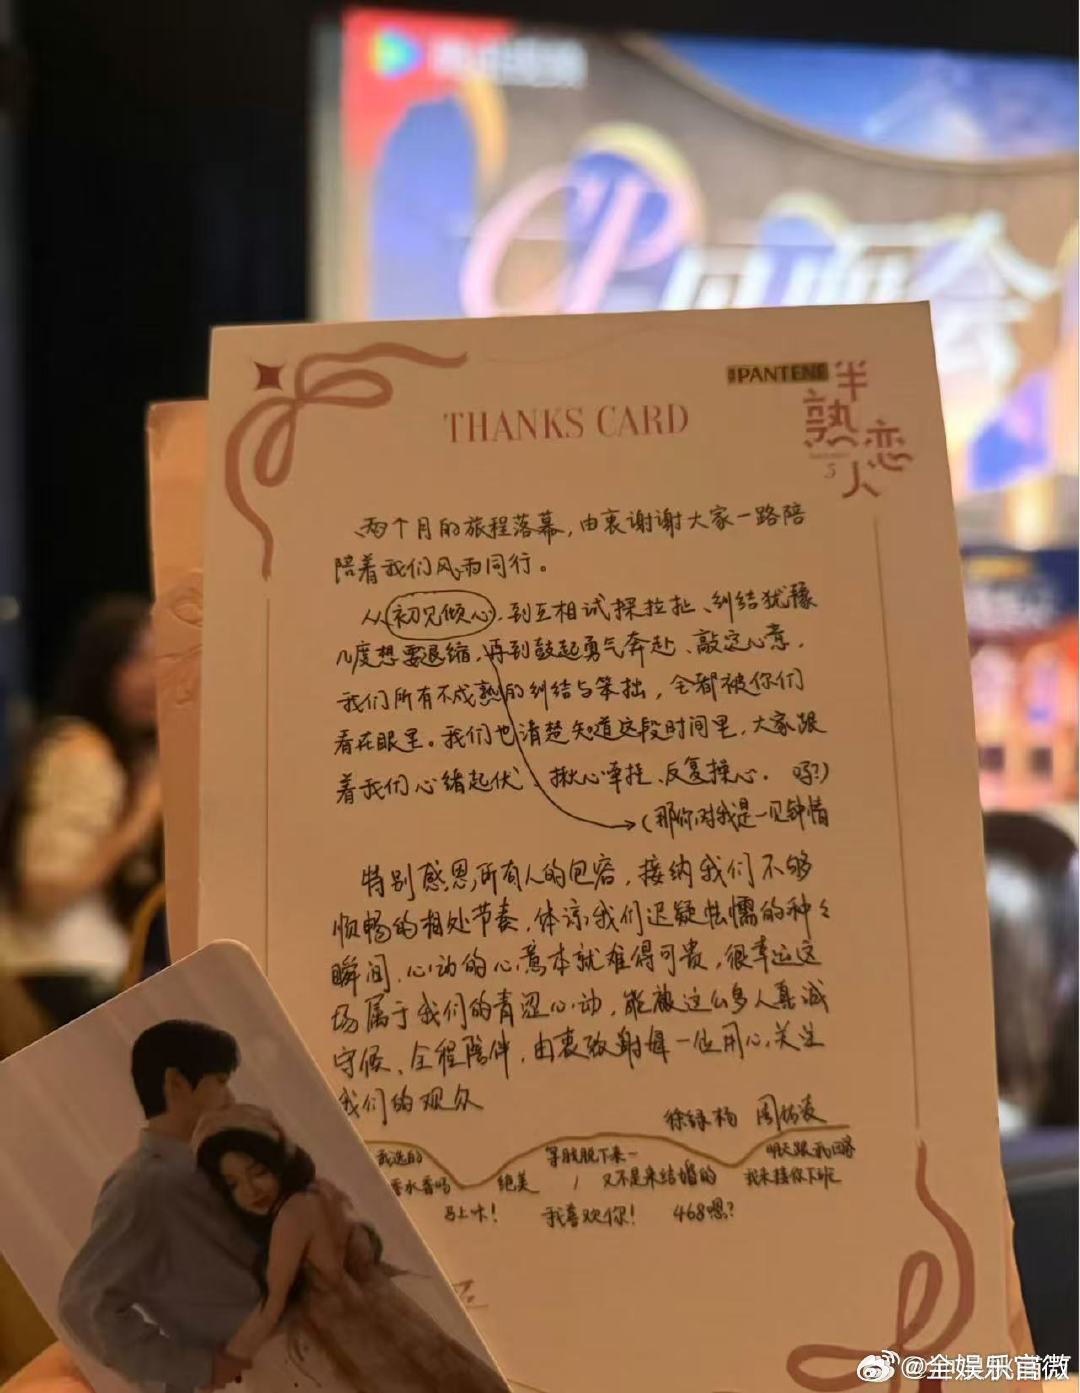 CP
THANKS CARD
PANTENE
半熟恋人
5
两个月的旅程落幕，由衷谢谢大家一路陪
陪着我们风雨同行。
从初见倾心，到互相试探拉扯、纠结犹豫
几度想要退缩，再到鼓起勇气奔赴、敲定心意，
我们所有不成熟的纠结与笨拙，全都被你们
看在眼里。我们也清楚知道这段时间里，大家跟
着我们心绪起伏、揪心牵挂、反复操心。
（那你对我是一见钟情吗？）
特别感恩，所有人的包容，接纳我们不够
顺畅的相处节奏，体谅我们迟疑怯懦的种々
瞬间，心动的心意本就难得可贵，很幸运这
场属于我们的青涩心动，能被这么多人真诚
守候、全程陪伴，由衷致谢每一位用心关注
我们的观众
我选的
香水香吗
绝美
等肢肢下来一
又不是来结婚的
我来接你下班
马上咔！
我喜欢你！
468嗯？
@全娱乐官微